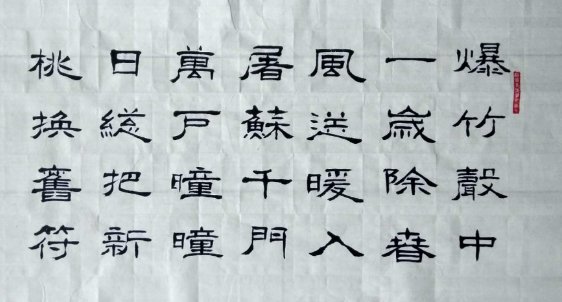 爆竹聲中
一歲除春
風送暖入
屠蘇千門
萬戶瞳瞳
日總把新
桃換舊符